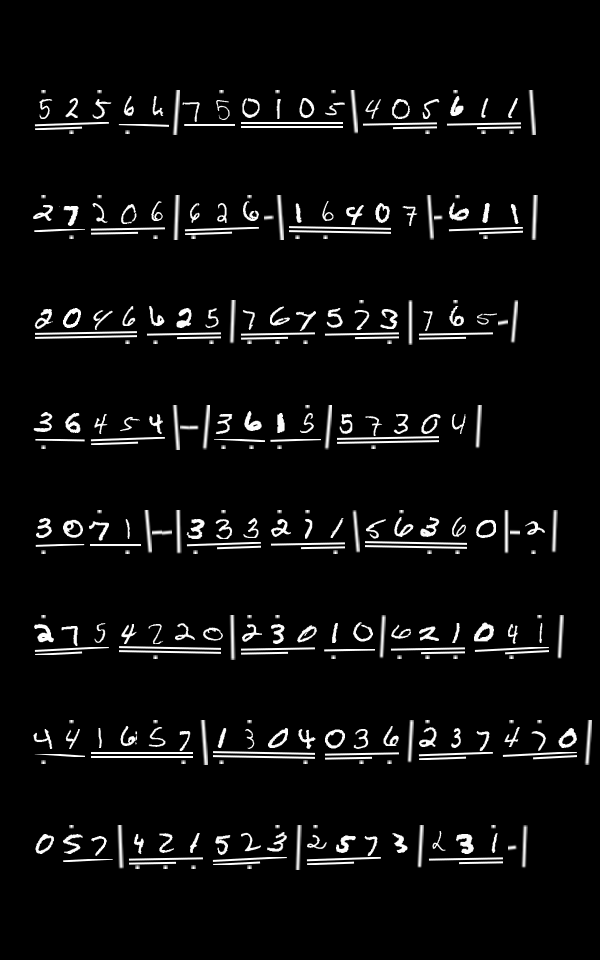 52564|750105|405611|
27206|626-|16407|-611|
2046625|767573|765-|
36454|-|3615|57304|
3071|-|333271|56360|-2|
2754220|23010|621041|
441657|1304036|237470|
057|421523|2573|231-|